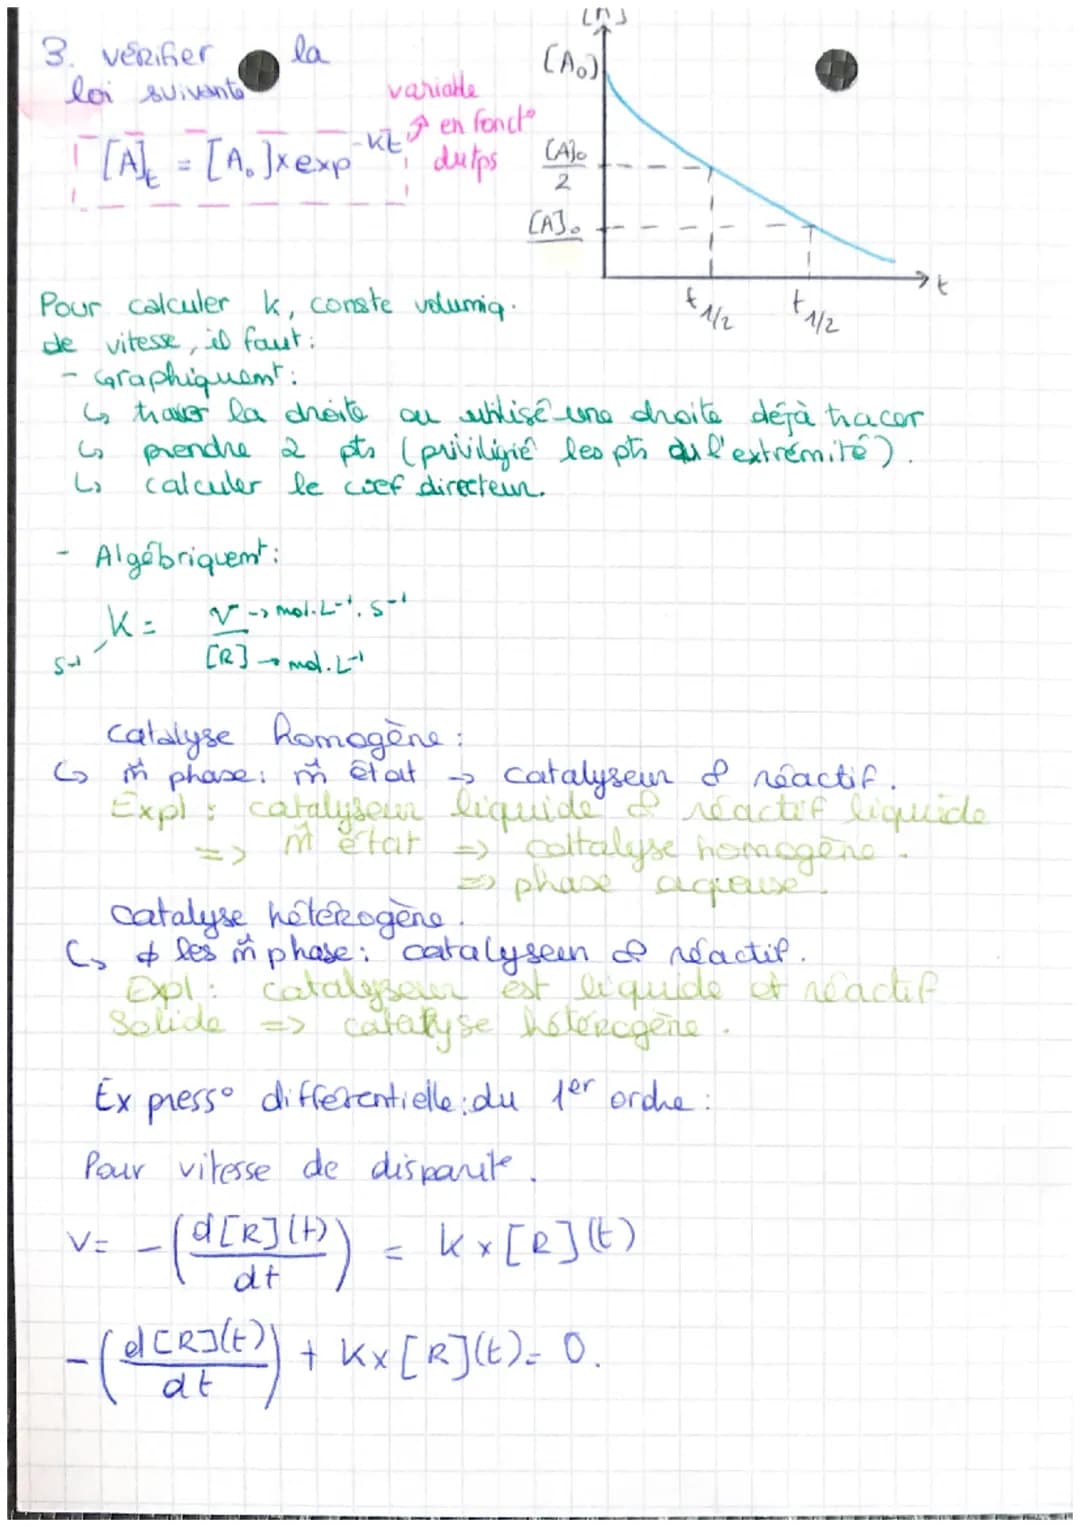 3. vérifier la
loi suivante
[A]t = [A₀]×exp^-kt
variable
↗ en fonct°
du tps
[A₀]
[A]₀/2
[A]₀
t 1/2
t 1/2
t
Pour calculer k, conste volumiq.
de vitesse, il faut :
- Graphiquemt :
↳ tracer la droite ou utilisé une droite déjà tracer
↳ prendre 2 pts (priviligié les pts du l'extrémité).
↳ calculer le coef directeur.
- Algébriquemt :
K = V → mol.L⁻¹.s⁻¹
s⁻¹ [R] → mol.L⁻¹
catalyse homogène :
↳ m̂ phase : m̂ état → catalyseur & réactif.
Expl : catalyseur liquide & réactif liquide
=> m̂ état => cattalyse homogène.
=> phase aqueuse.
catalyse hétérogène.
↳ ≠ les m̂ phase : catalyseur & réactif.
Expl : catalyseur est liquide et réactif
Solide => catalyse hétérogène.
Express° différentielle : du 1er ordre :
Pour vitesse de disparite.
V = -(d[R](t)/dt) = k×[R](t)
-(d[R](t)/dt) + K×[R](t) = 0.